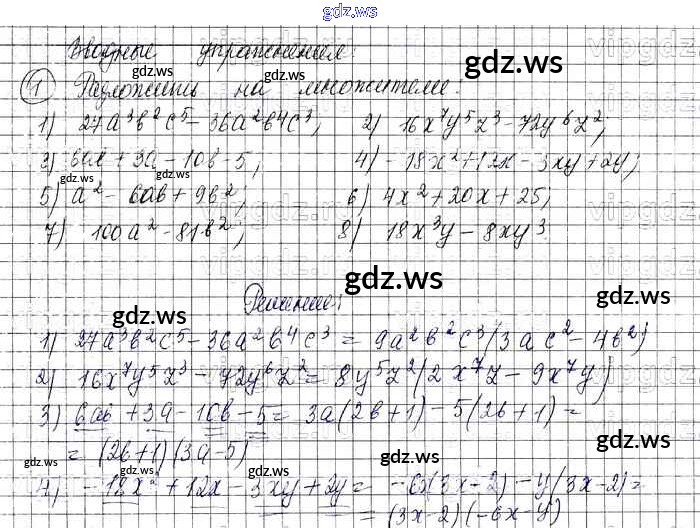 gdz.ws
Вводные упражнения:
gdz.ws
gdz.ws
1 Разложить на множители:
gdz.ws
1) 27a³b²c⁵ - 36a²b⁴c³; 2) 16x⁷y⁵z³ - 72y⁶z²;
3) 6ab + 3a - 10b - 5; 4) - 18x² + 12x - 3xy + 2y;
gdz.ws
gdz.ws
5) a² - 6ab + 9b²; 6) 4x² + 20x + 25;
7) 100a² - 81b²; 8) 18x³y - 8xy³
gdz.ws
gdz.ws
Решение:
gdz.ws
1) 27a³b²c⁵ - 36a²b⁴c³ = 9a²b²c³(3ac² - 4b²)
2) 16x⁷y⁵z³ - 72y⁶z² = 8y⁵z²(2x⁷z - 9x⁷y)
3) 6ab + 3a - 10b - 5 = 3a(2b+1) - 5(2b+1) =
gdz.ws
= (2b+1)(3a-5)
gdz.ws
gdz.ws
gdz.ws
4) - 18x² + 12x - 3xy + 2y = -6x(3x-2) - y(3x-2) =
= (3x-2)(-6x-y)
gdz.ws
gdz.ws
gdz.ws